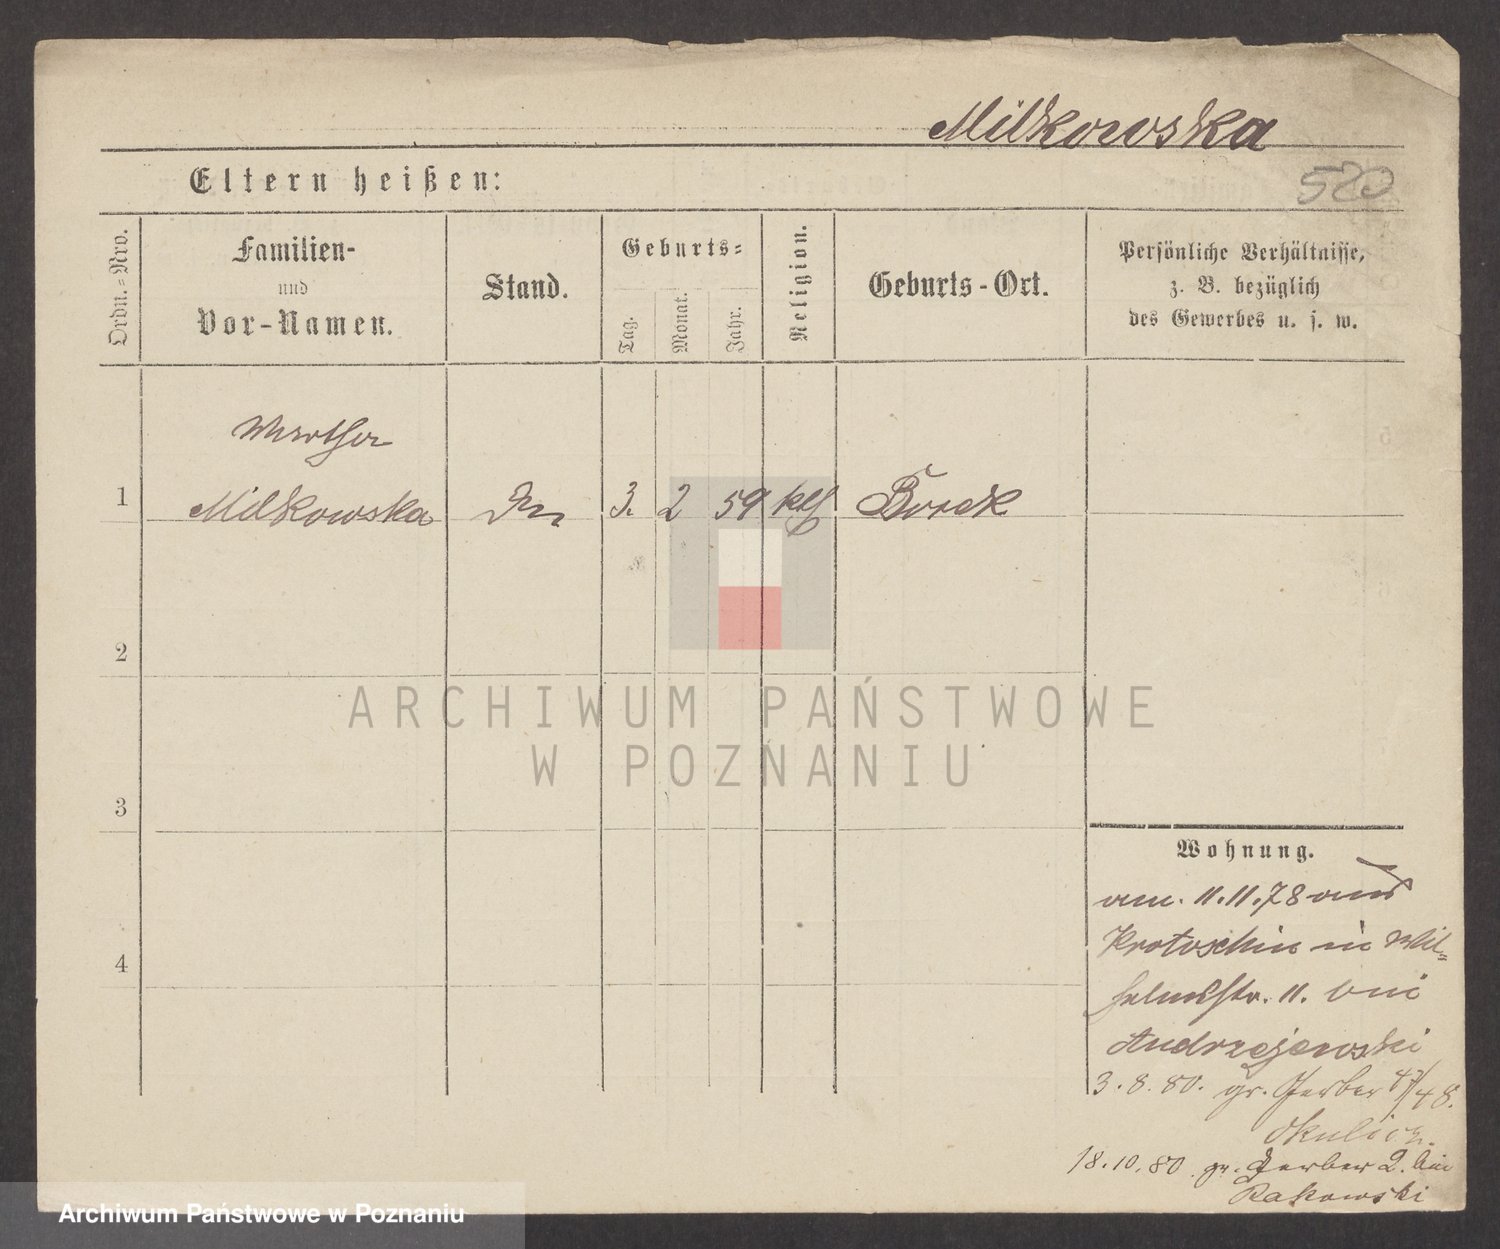 Milkowska
Eltern heißen:
520
Ordn.=Nro.
Familien-
und
Vor-Namen.
Stand.
Geburts=
Tag.
Monat.
Jahr.
Religion.
Geburts-Ort.
Persönliche Verhältnisse,
z. B. bezüglich
des Gewerbes u. s. w.
1
Milkowska
3. 2 59 kth
Borek
2
3
4
Wohnung.
am. 11.11.78 aus
Krotoschin in Wil=
helmstr. 11. bei
Andrzejewski
3.8.80. gr. Gerber 47/48.
Skulicz.
18.10.80. gr. Gerber 2. bei
Rakowski
ARCHIWUM PAŃSTWOWE
W POZNANIU
Archiwum Państwowe w Poznaniu